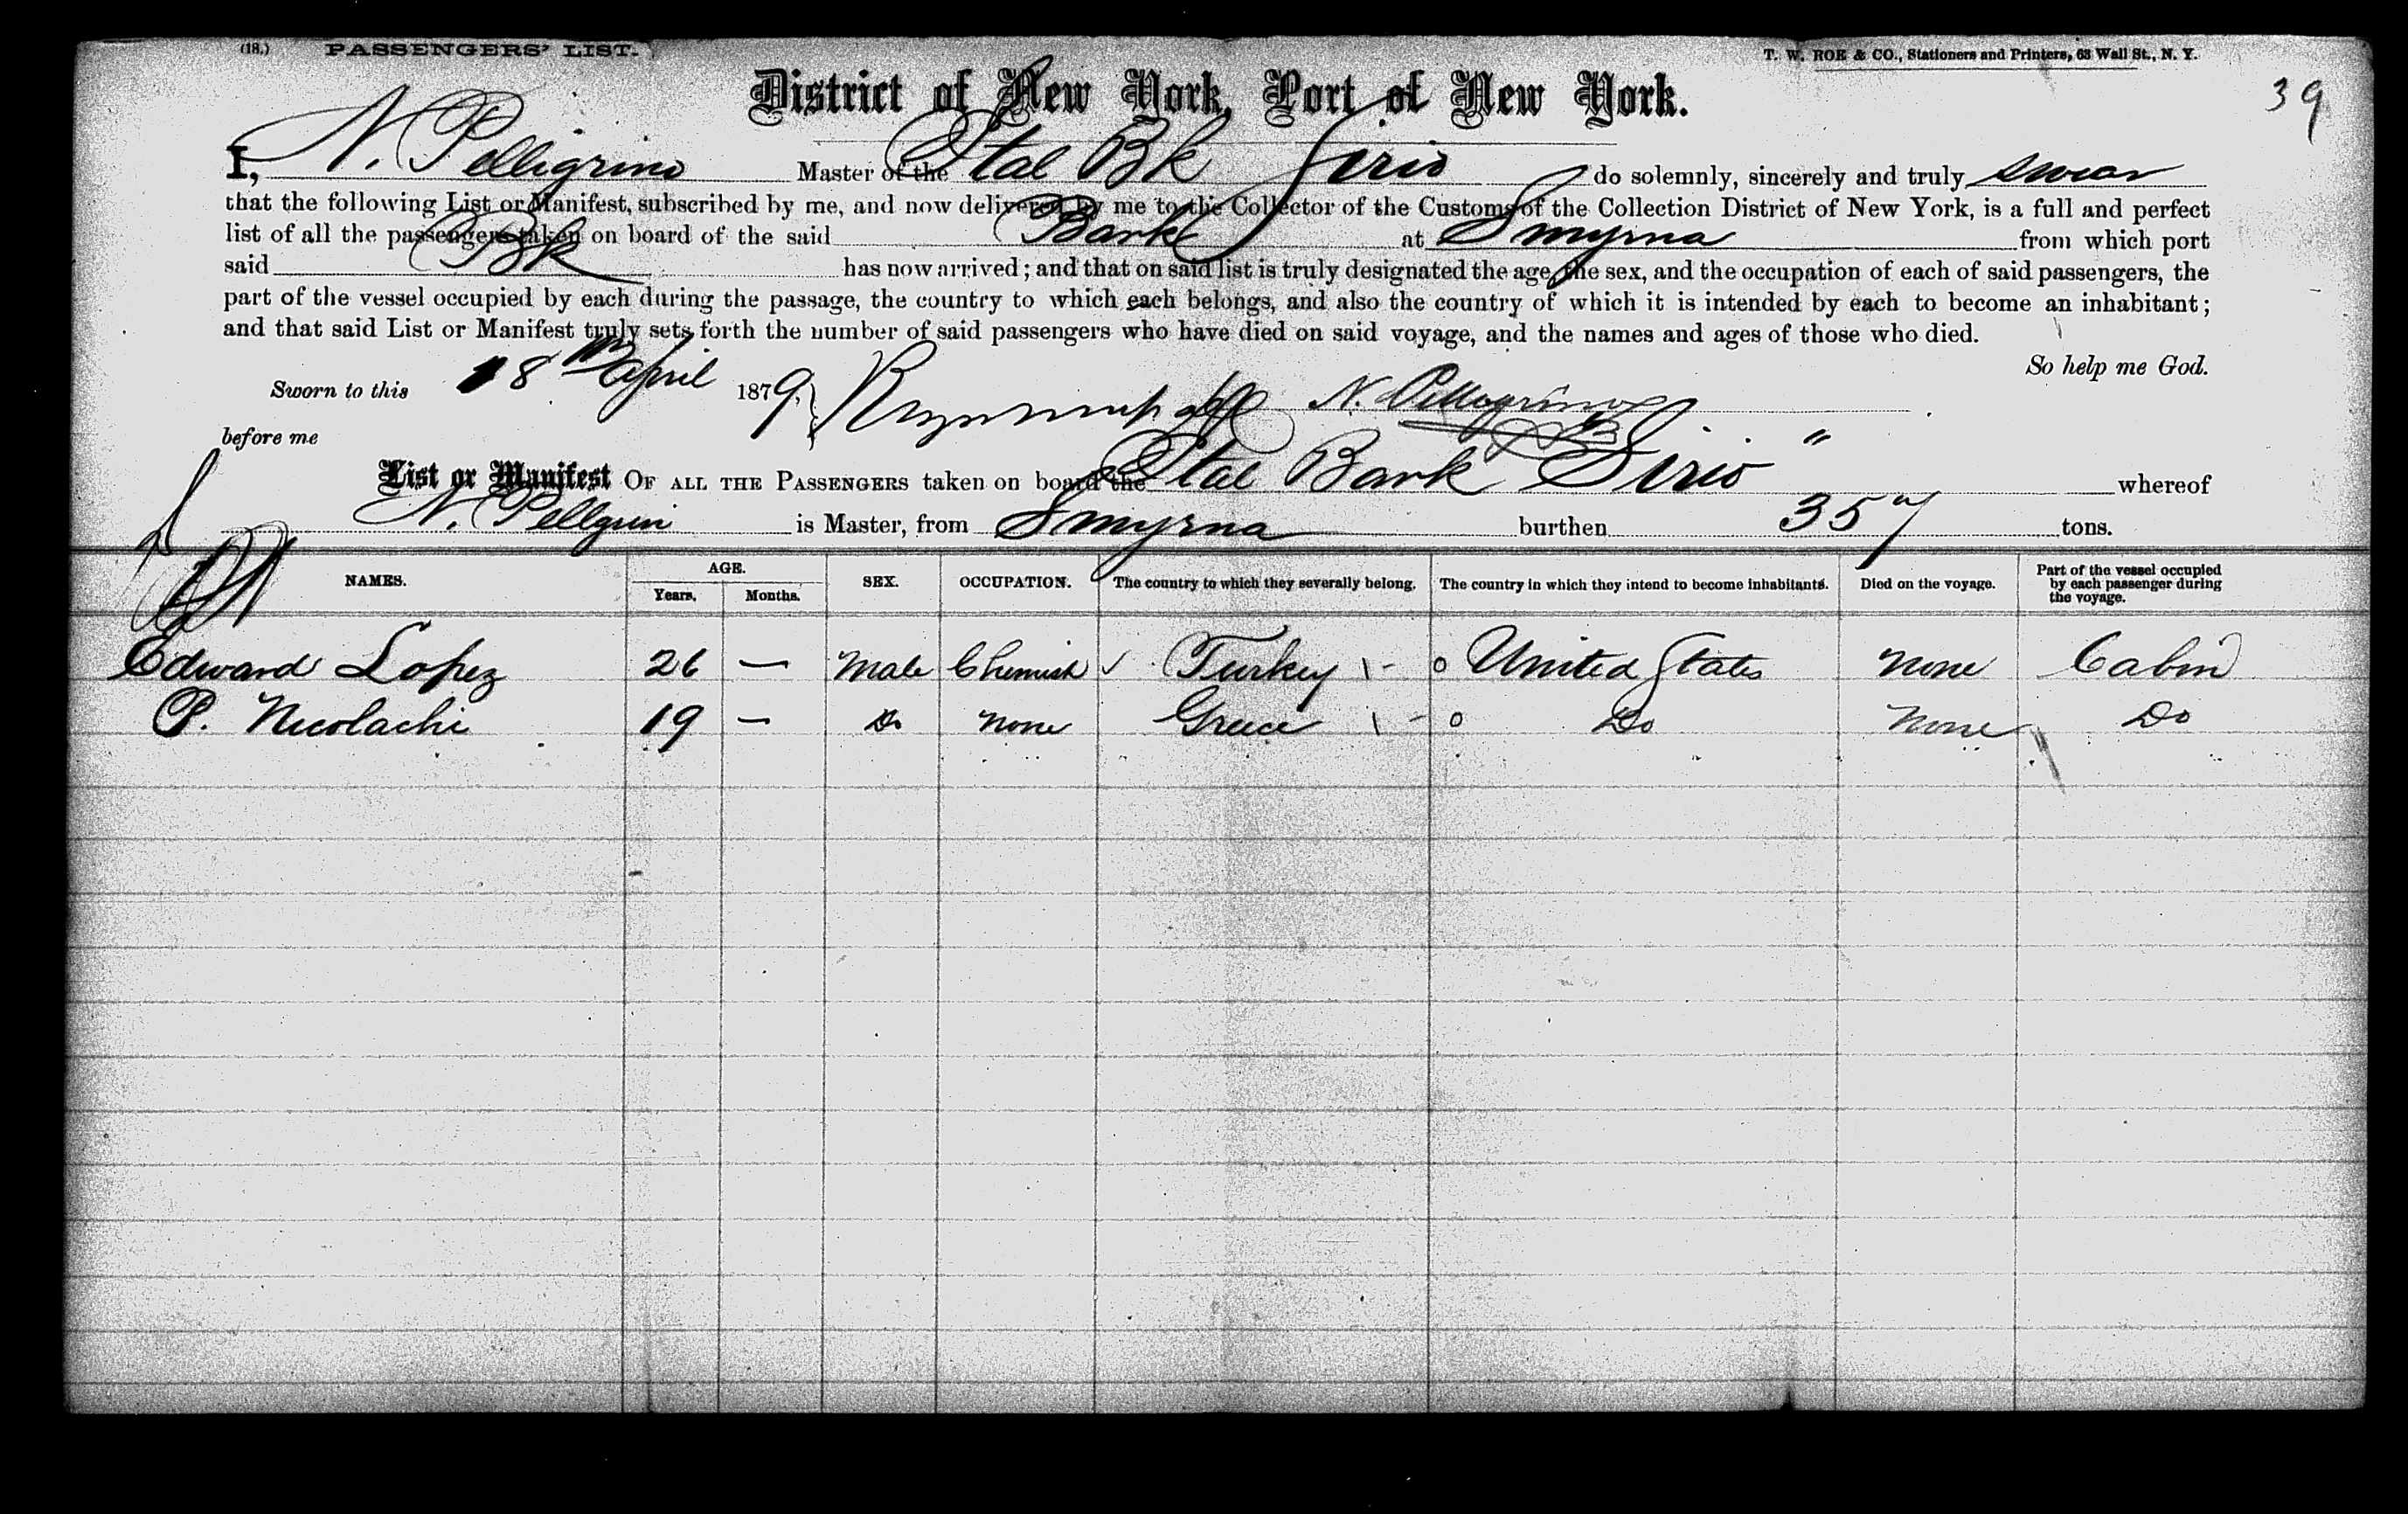 (18.) PASSENGERS' LIST.
T. W. ROE & CO., Stationers and Printers, 63 Wall St., N. Y.
39
District of New York, Port of New York.
I, N. Pelligrino Master of the Ital Bk Sirio do solemnly, sincerely and truly swear
that the following List or Manifest, subscribed by me, and now delivered by me to the Collector of the Customs of the Collection District of New York, is a full and perfect
list of all the passengers taken on board of the said Bark at Smyrna from which port
said Bk has now arrived; and that on said list is truly designated the age, the sex, and the occupation of each of said passengers, the
part of the vessel occupied by each during the passage, the country to which each belongs, and also the country of which it is intended by each to become an inhabitant;
and that said List or Manifest truly sets forth the number of said passengers who have died on said voyage, and the names and ages of those who died.
So help me God.
Sworn to this 18th April 1879, N. Pellegrino
before me
List or Manifest OF ALL THE PASSENGERS taken on board the Ital Bark Sirio " whereof
N. Pellgrin is Master, from Smyrna burthen 357 tons.
NAMES. AGE. Years. Months. SEX. OCCUPATION. The country to which they severally belong. The country in which they intend to become inhabitants. Died on the voyage. Part of the vessel occupied by each passenger during the voyage.
Edward Lopez 26 — Male Chemist ✓ Turkey \ - o United States None Cabin
P. Nicolachi 19 — Do None Greece \ - o Do None Do